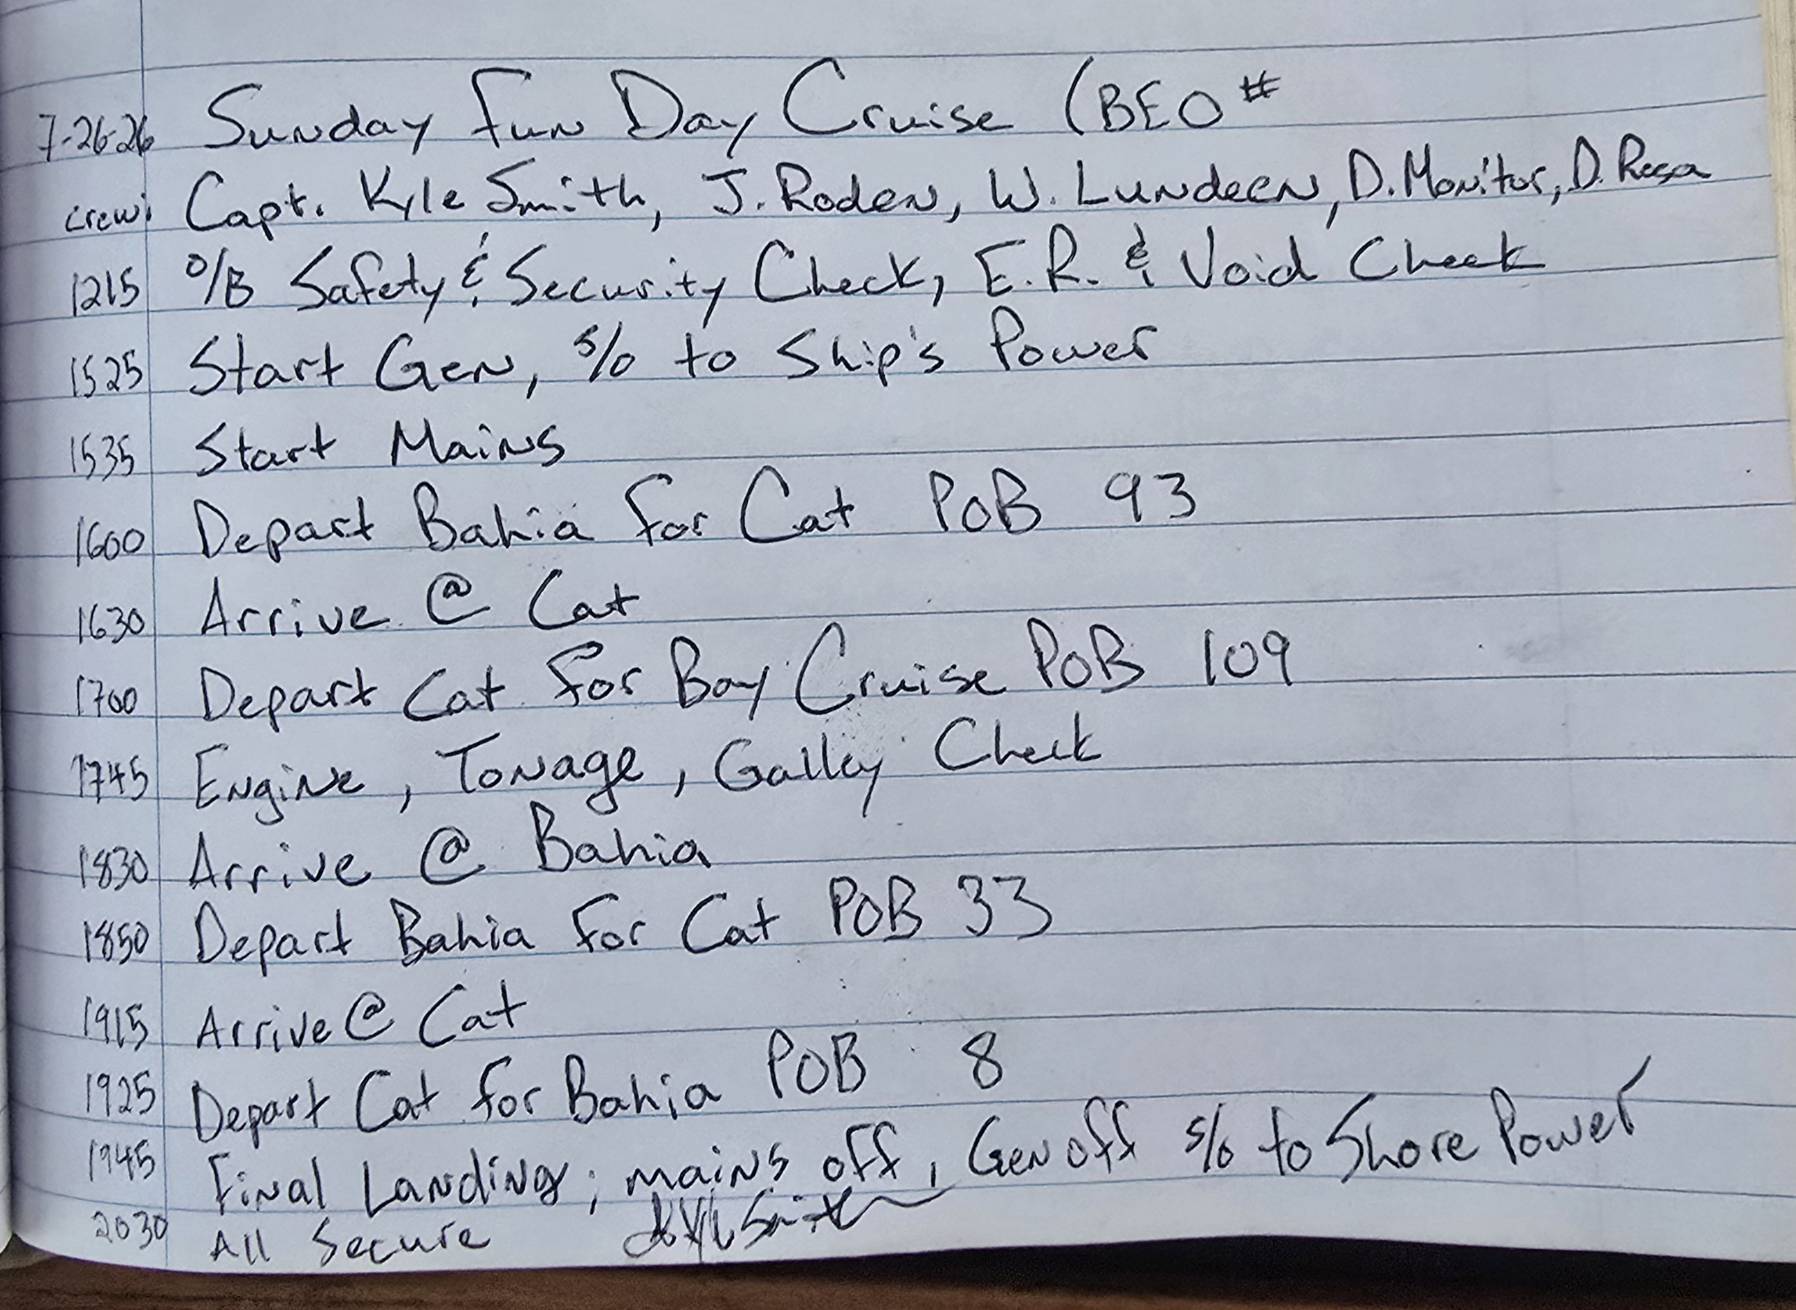 7-26-26 Sunday Fun Day Cruise (BEO #
Crew: Capt. Kyle Smith, J. Roden, W. Lundeen, D. Monitor, D. Rosa
1215 O/B Safety & Security Check, E.R. & Void Check
1525 Start Gen, S/O to Ship's Power
1535 Start Mains
1600 Depart Bahia for Cat POB 93
1630 Arrive @ Cat
1700 Depart Cat for Bay Cruise POB 109
1745 Engine, Tonage, Galley Check
1830 Arrive @ Bahia
1850 Depart Bahia for Cat POB 33
1915 Arrive @ Cat
1925 Depart Cat for Bahia POB 8
1945 Final Landing; mains off, Gen off S/O to Shore Power
2030 All Secure Kyle Smith